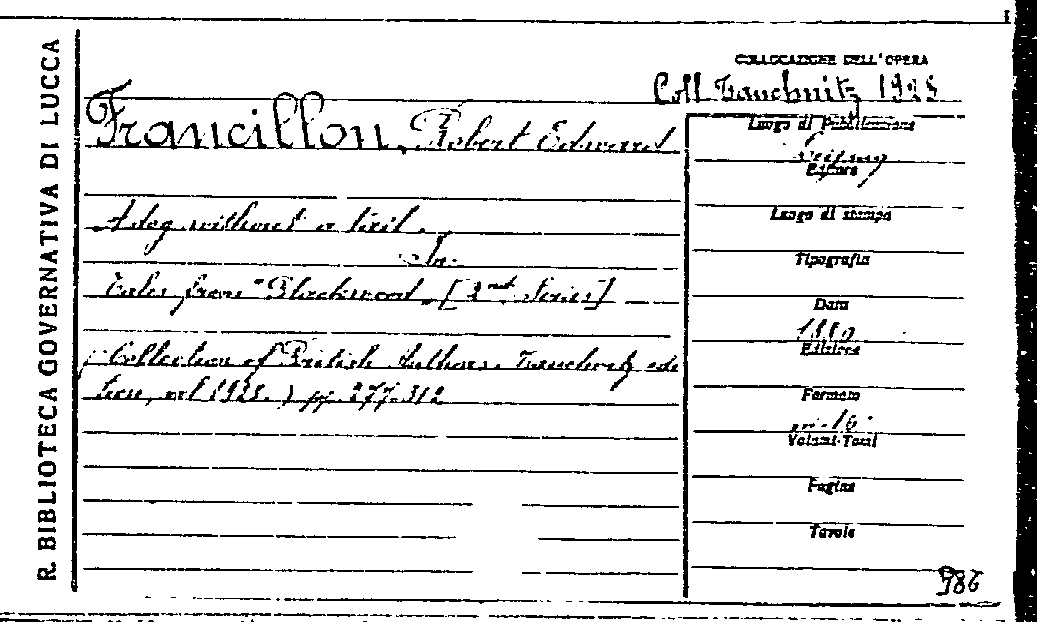 R. BIBLIOTECA GOVERNATIVA DI LUCCA
COLLOCAZIONE DELL'OPERA
Coll. Tauchnitz 1925
Francillon, Robert Edward
A dog without a tail.
In:
Tales from "Blackwood". [2nd Series]
(Collection of British Authors. Tauchnitz edi
tion, vol 1925.) pp. 277-312
Luogo di Pubblicazione
Leipzig
Editore
Luogo di stampa
Tipografia
Data
1880
Edizione
Formato
in-16°
Volumi-Tomi
Pagine
Tavole
986